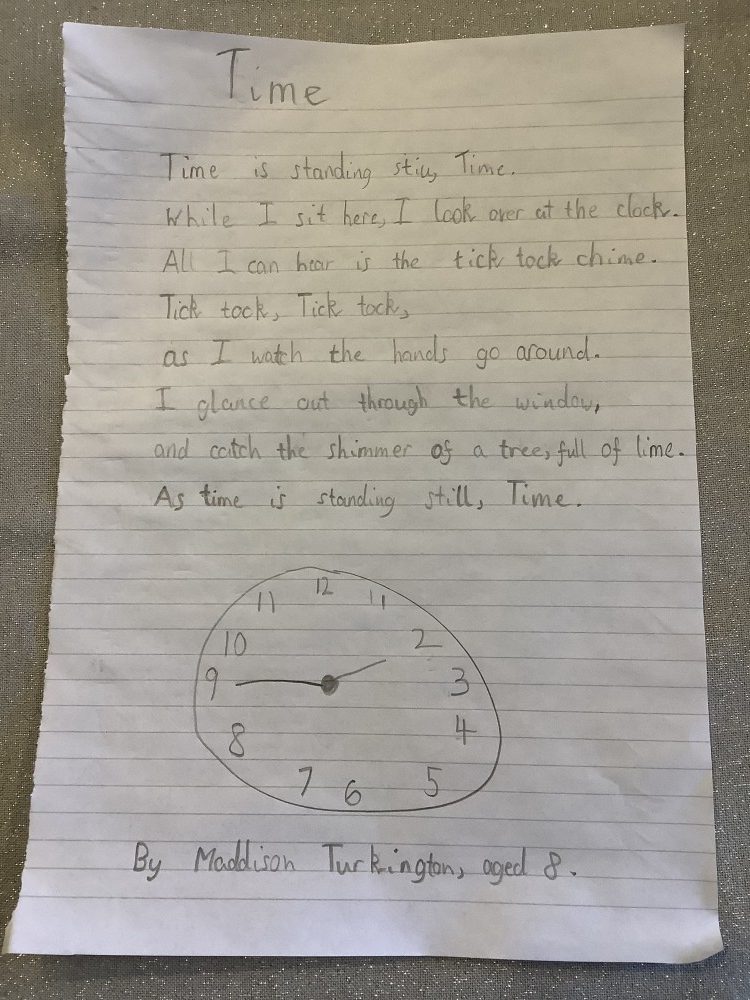 Time
Time is standing still, Time.
While I sit here, I look over at the clock.
All I can hear is the tick tock chime.
Tick tock, Tick tock,
as I watch the hands go around.
I glance out through the window,
and catch the shimmer of a tree, full of lime.
As time is standing still, Time.
12
11 11
10 2
9 3
8 4
7 6 5
By Maddison Turkington, aged 8.